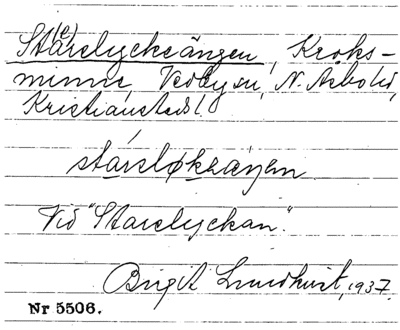 Sta(e)relyckeängen, Kroks-
minne, Vedby sn, N. Åsbo hd,
Kristianstads l.
stársløkeäŋen
Vid "Starelyckan".
Birgit Lundkvist, 1937.
Nr 5506.